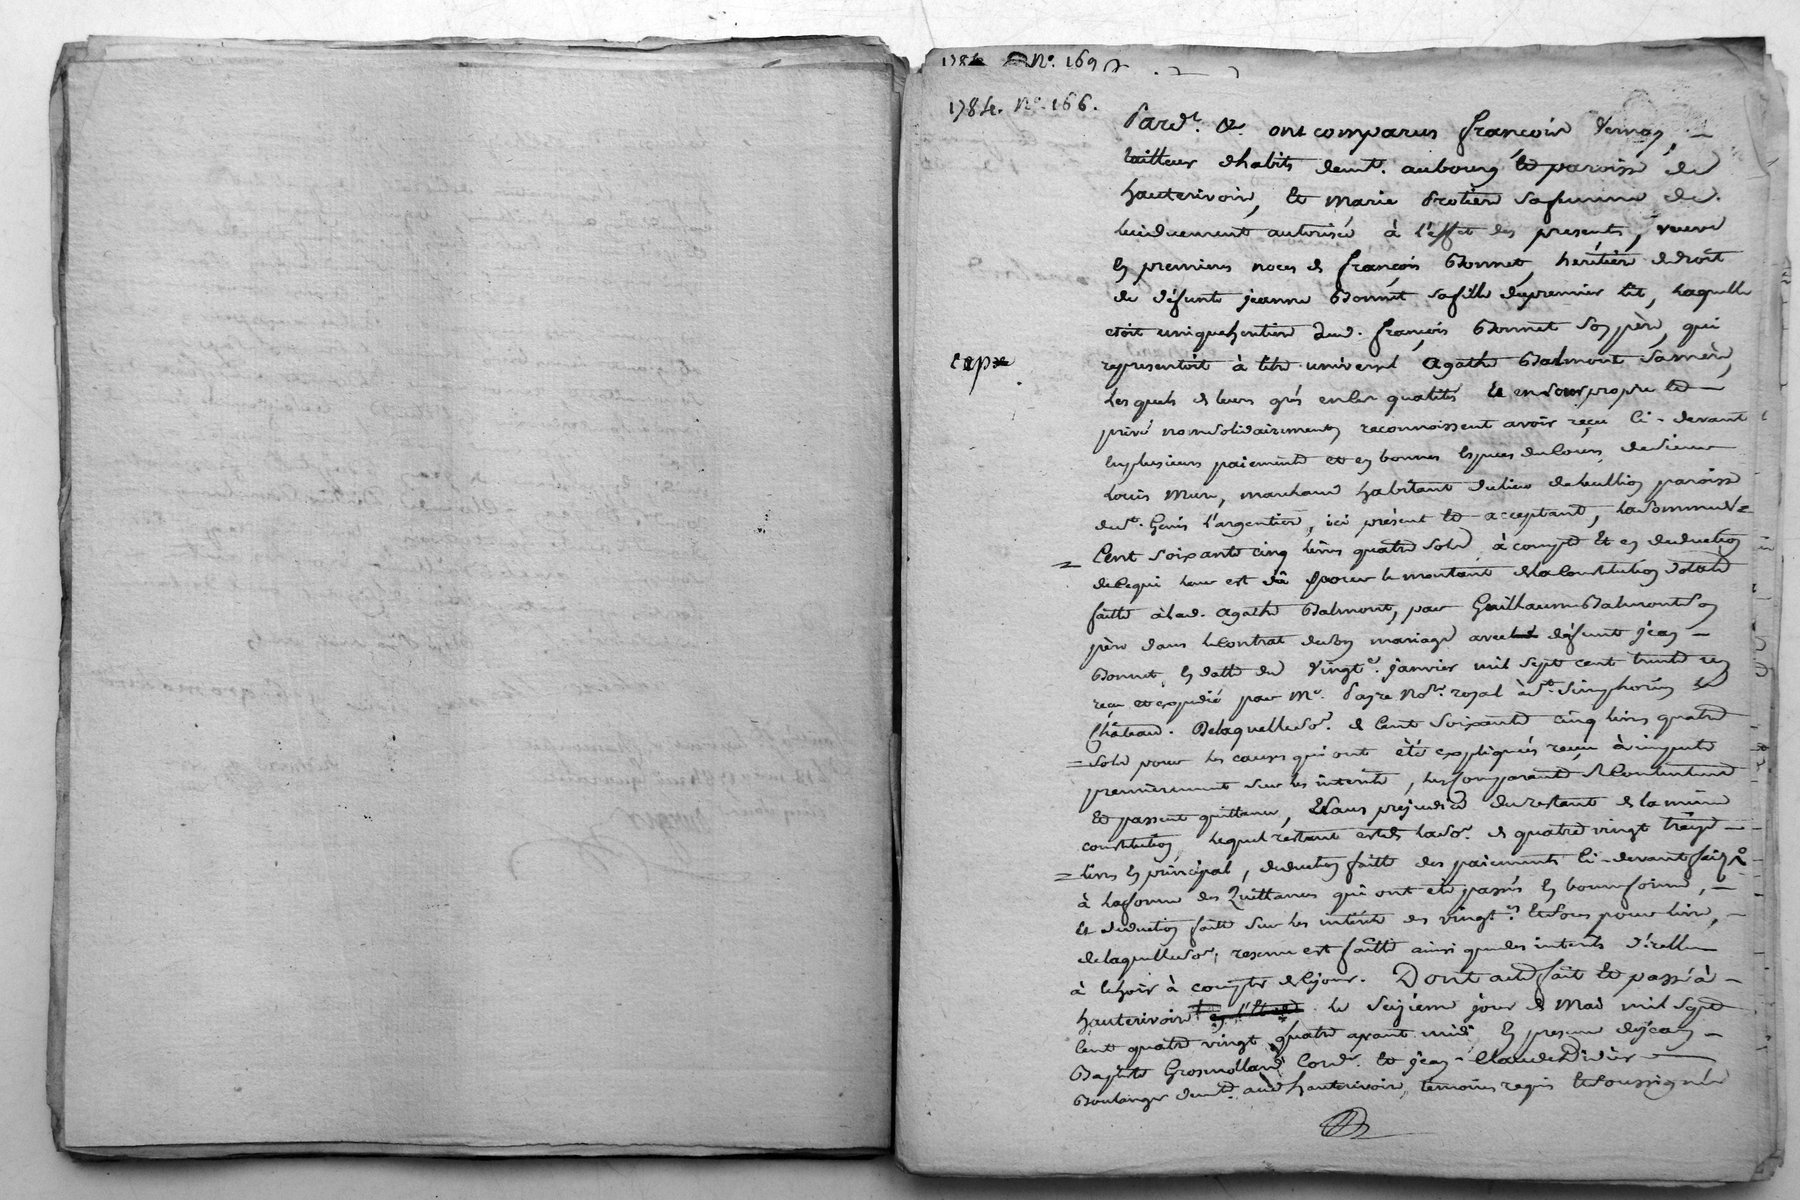 1784 N°. 169
1784. N°. 166.
Pard^t. &. ont comparus françois Vernay,
tailleur dhabits demt. aubourg et paroisse de
hauterivoire, et marie Protiere safemme de
luiduement autorisée à l'effet des presents, veuve
en premieres noces de françois Bonnet, heritiere dedroit
de défunte jeanne Bonnet safille dupremier lit, laquelle
etoit uniqueheritiere dud. françois Bonnet son père, qui
expe
representoit à titre universel Agathe Balmont samère,
Lesquels de leurs grés enleurs qualités et enleur propre et
privé nomsolidairement reconnoissent avoir reçu ci-devant
enplusieurs paiements et en bonnes espèces ducours, dusieur
Louis Mure, marchand habitant dulieu de paroisse
de st. Genis l'argentiere, ici présent et acceptant, lasommede
= Cent soixante cinq livres quatre sols, à compte et en deduction
decequi leur est dû pour le montant delaconstitution dotale
faitte àlad. Agathe Balmont, par Guillaume Balmont son
père dans lecontrat deson mariage avec défunt jean
Bonnet, en datte du vingt^e. janvier mil sept cent trente
reçu et expédié par M^e. Payre No^re. royal à st. Simphorien le
Château. Delaquelle so^e. de cent soixante cinq livres quatre
= sols pour les causes qui ont été expliquées reçue à imputer
premierement sur les interets, les comparants se contentent
et passent quittance, et sans prejudice durestant de la même
constitution, lequel restant est de laso^e. de quatre vingt treize
= livres en principal, deduction faitte des paiements ci-devant faits
à laforme des Quittances qui ont été passées en bonneforme,
et deduction faitte sur les intérêts des vingt^es. et sols pour livre,
delaquelleso^e. reserve est faitte ainsi quedes interets d'icelle
à échoir à compter de cejour. Dont acte fait et passé à
hauterivoire le seizieme jour de Mai mil sept
cent quatre vingt quatre avant midi en presence dejean
Baptiste Grosmolland Cord^r. et jean-Claude Didier
Boulanger demt. aud. hauterivoire, temoins requis et soussignés